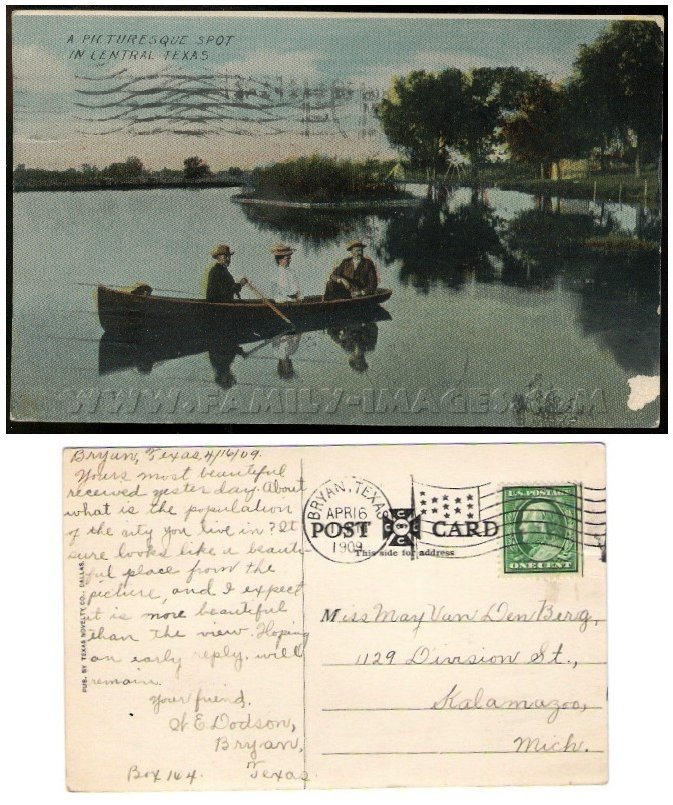 A PICTURESQUE SPOT
IN CENTRAL TEXAS
WWW.FAMILY-IMAGES.COM
Bryan, Texas 4/16/09.
Yours most beautiful
received yesterday. About
what is the population
of the city you live in? It
sure looks like a beauti-
ful place from the
picture, and I expect
it is more beautiful
than the view. Hoping
an early reply. will
remain.
Your friend,
W E Dodson,
Bryan,
Box 164. Texas
PUB. BY TEXAS NOVELTY CO., DALLAS.
BRYAN, TEXAS
APR 16
1909
POST CARD
This side for address
U.S. POSTAGE
ONE CENT
Miss May Van Den Berg,
1129 Division St.,
Kalamazoo,
Mich.